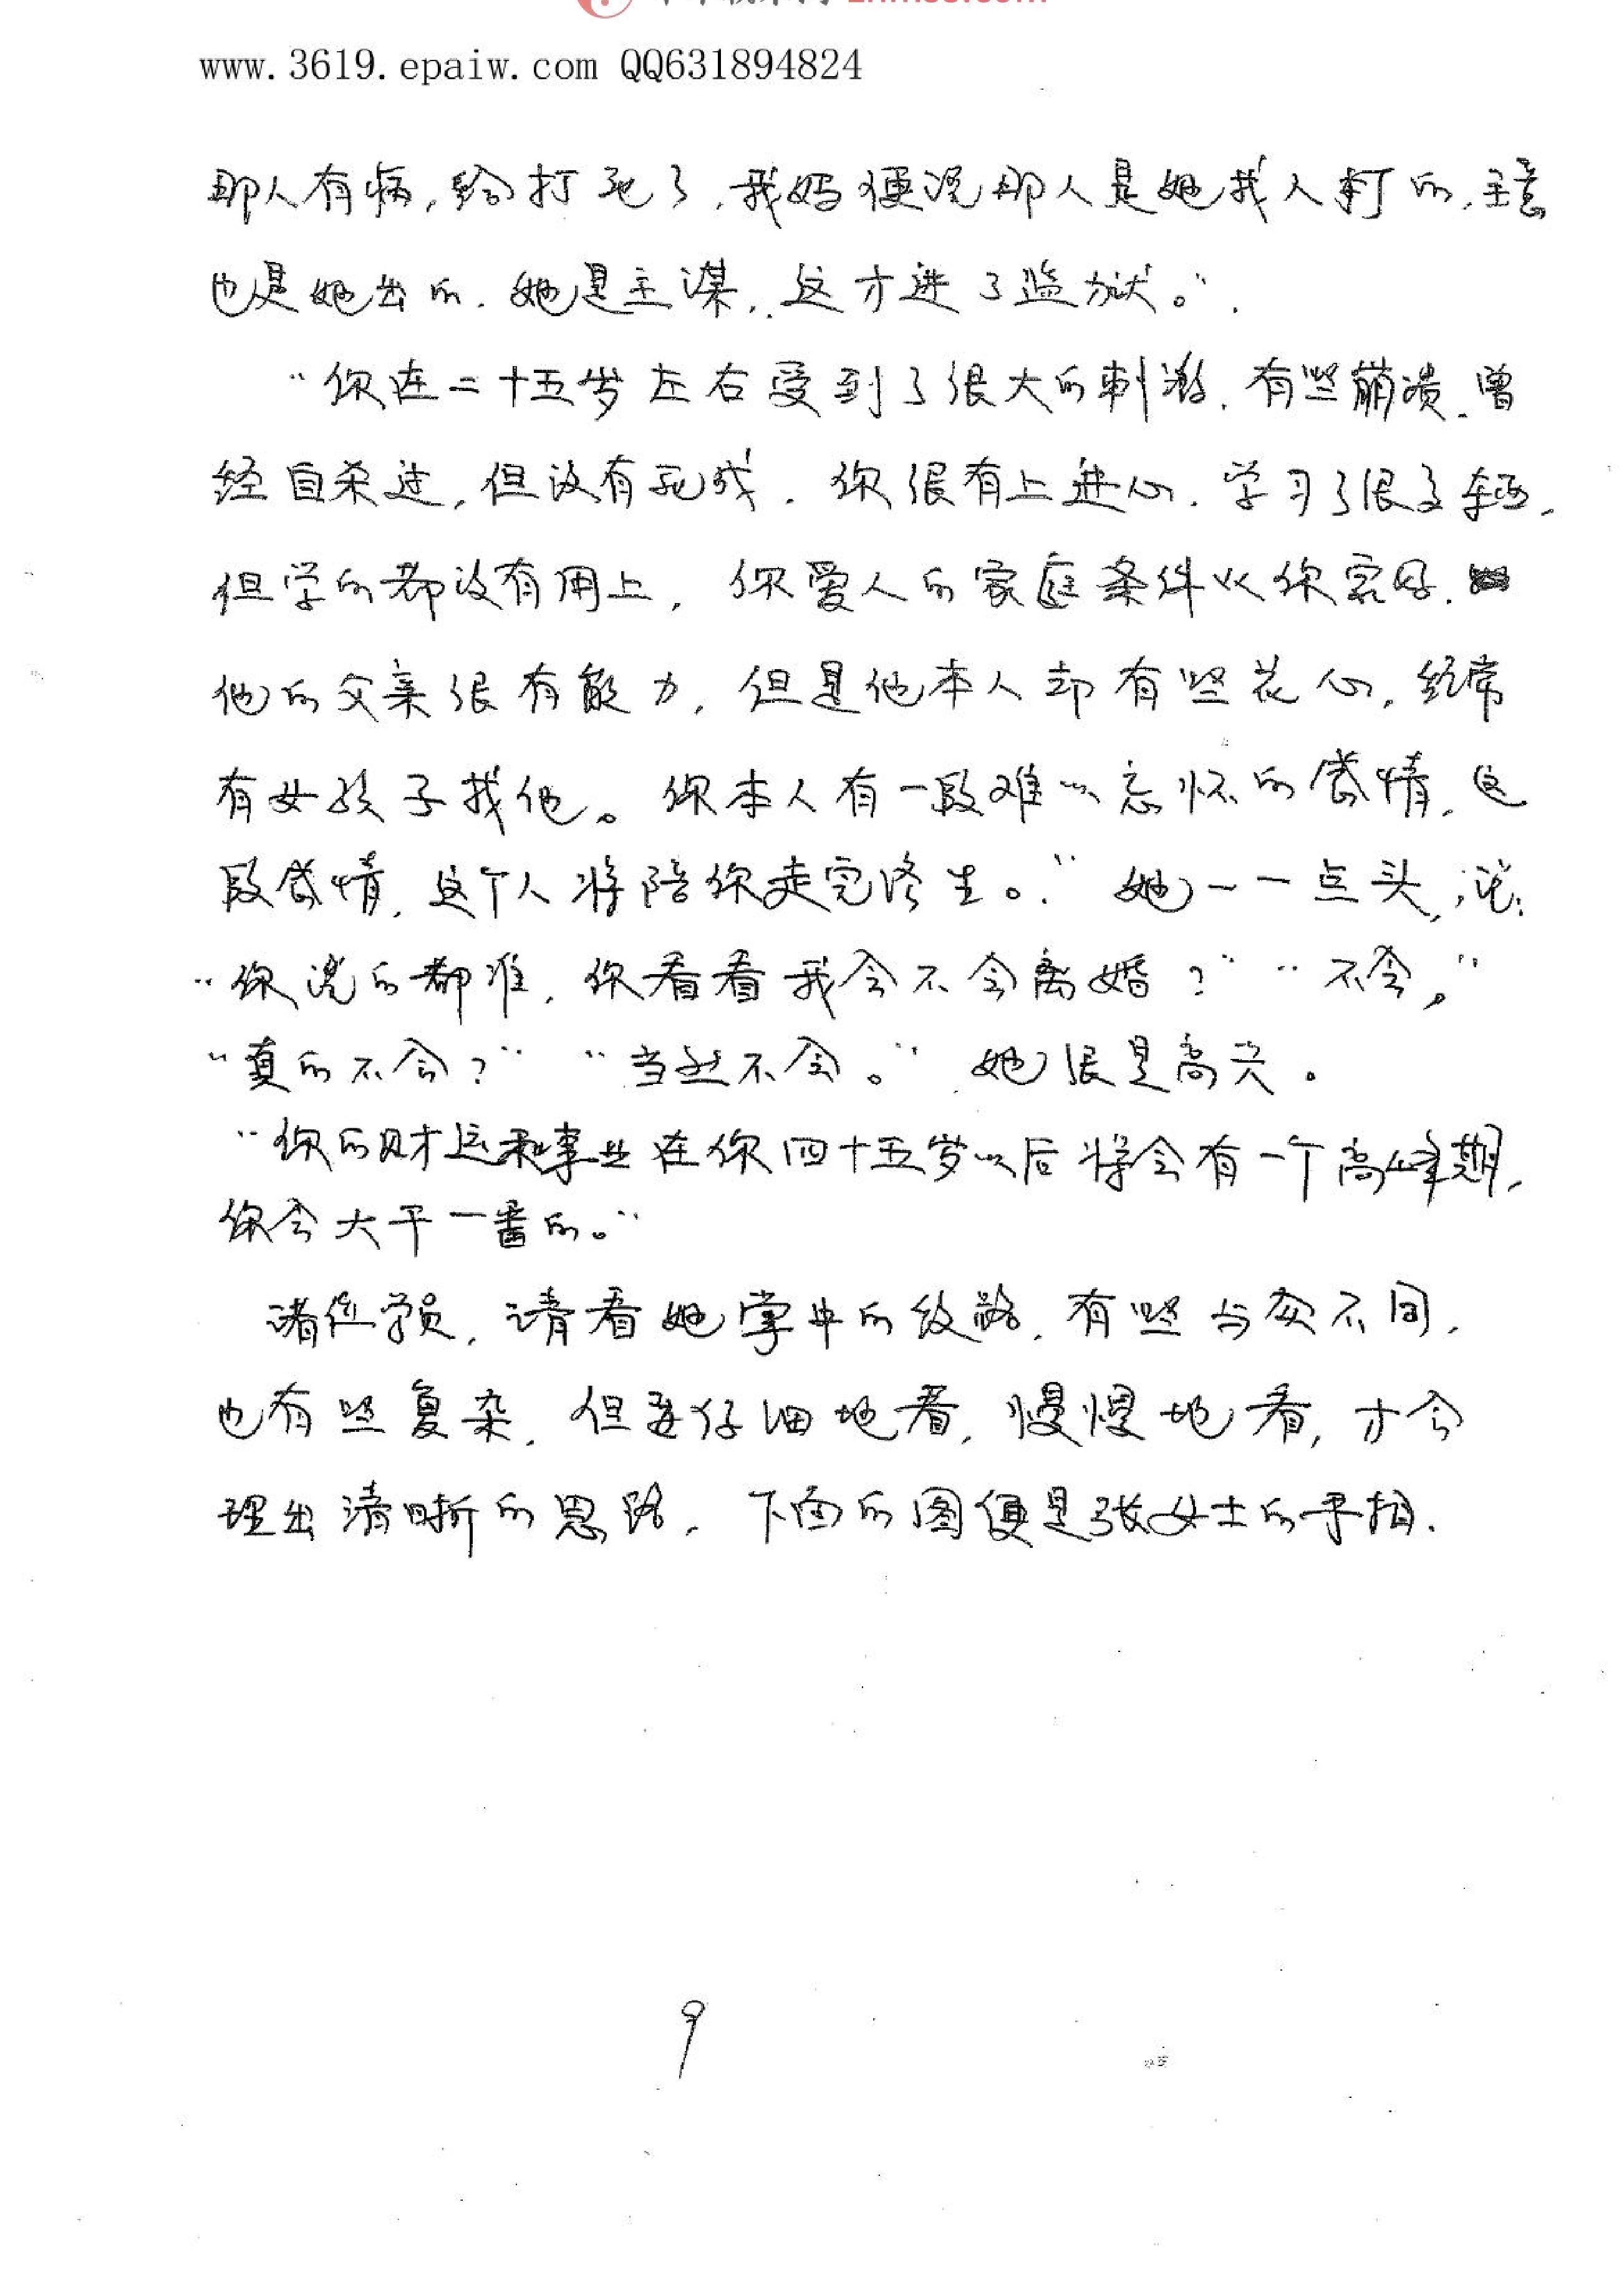 www.3619.epaiw.com QQ631894824
那人有病,给打死了,我妈便说那人是她找人打的,主意
也是她出的.她是主谋,这才进了监狱。”
“你在二十五岁左右受到了很大的刺激.有些崩溃.曾
经自杀过,但没有死成.你很有上进心.学习了很多东西,
但学的都没有用上,你爱人的家庭条件比你家好.
他的父亲很有能力,但是他本人却有些花心,经常
有女孩子找他。你本人有一段难以忘怀的感情,这
段感情,这个人将陪你走完终生。”她一一点头,说:
“你说的都准,你看看我会不会离婚?”“不会。”
“真的不会?”“当然不会。”她很是高兴.
“你的财运和事业在你四十五岁以后将会有一个高峰期,
你会大干一番的。”
诸位学员,请看她掌中的纹路,有些与众不同,
也有些复杂,但要仔细地看,慢慢地看,才会
理出清晰的思路,下面的图便是张女士的手相.
9